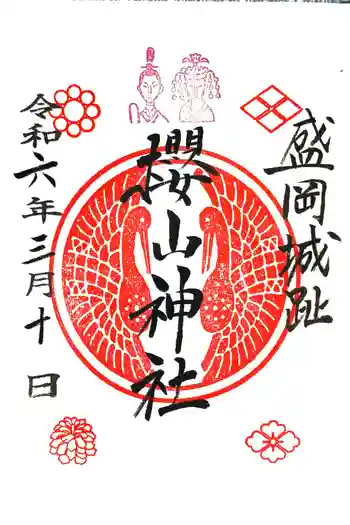 盛岡城趾
櫻山神社
令和六年三月十日